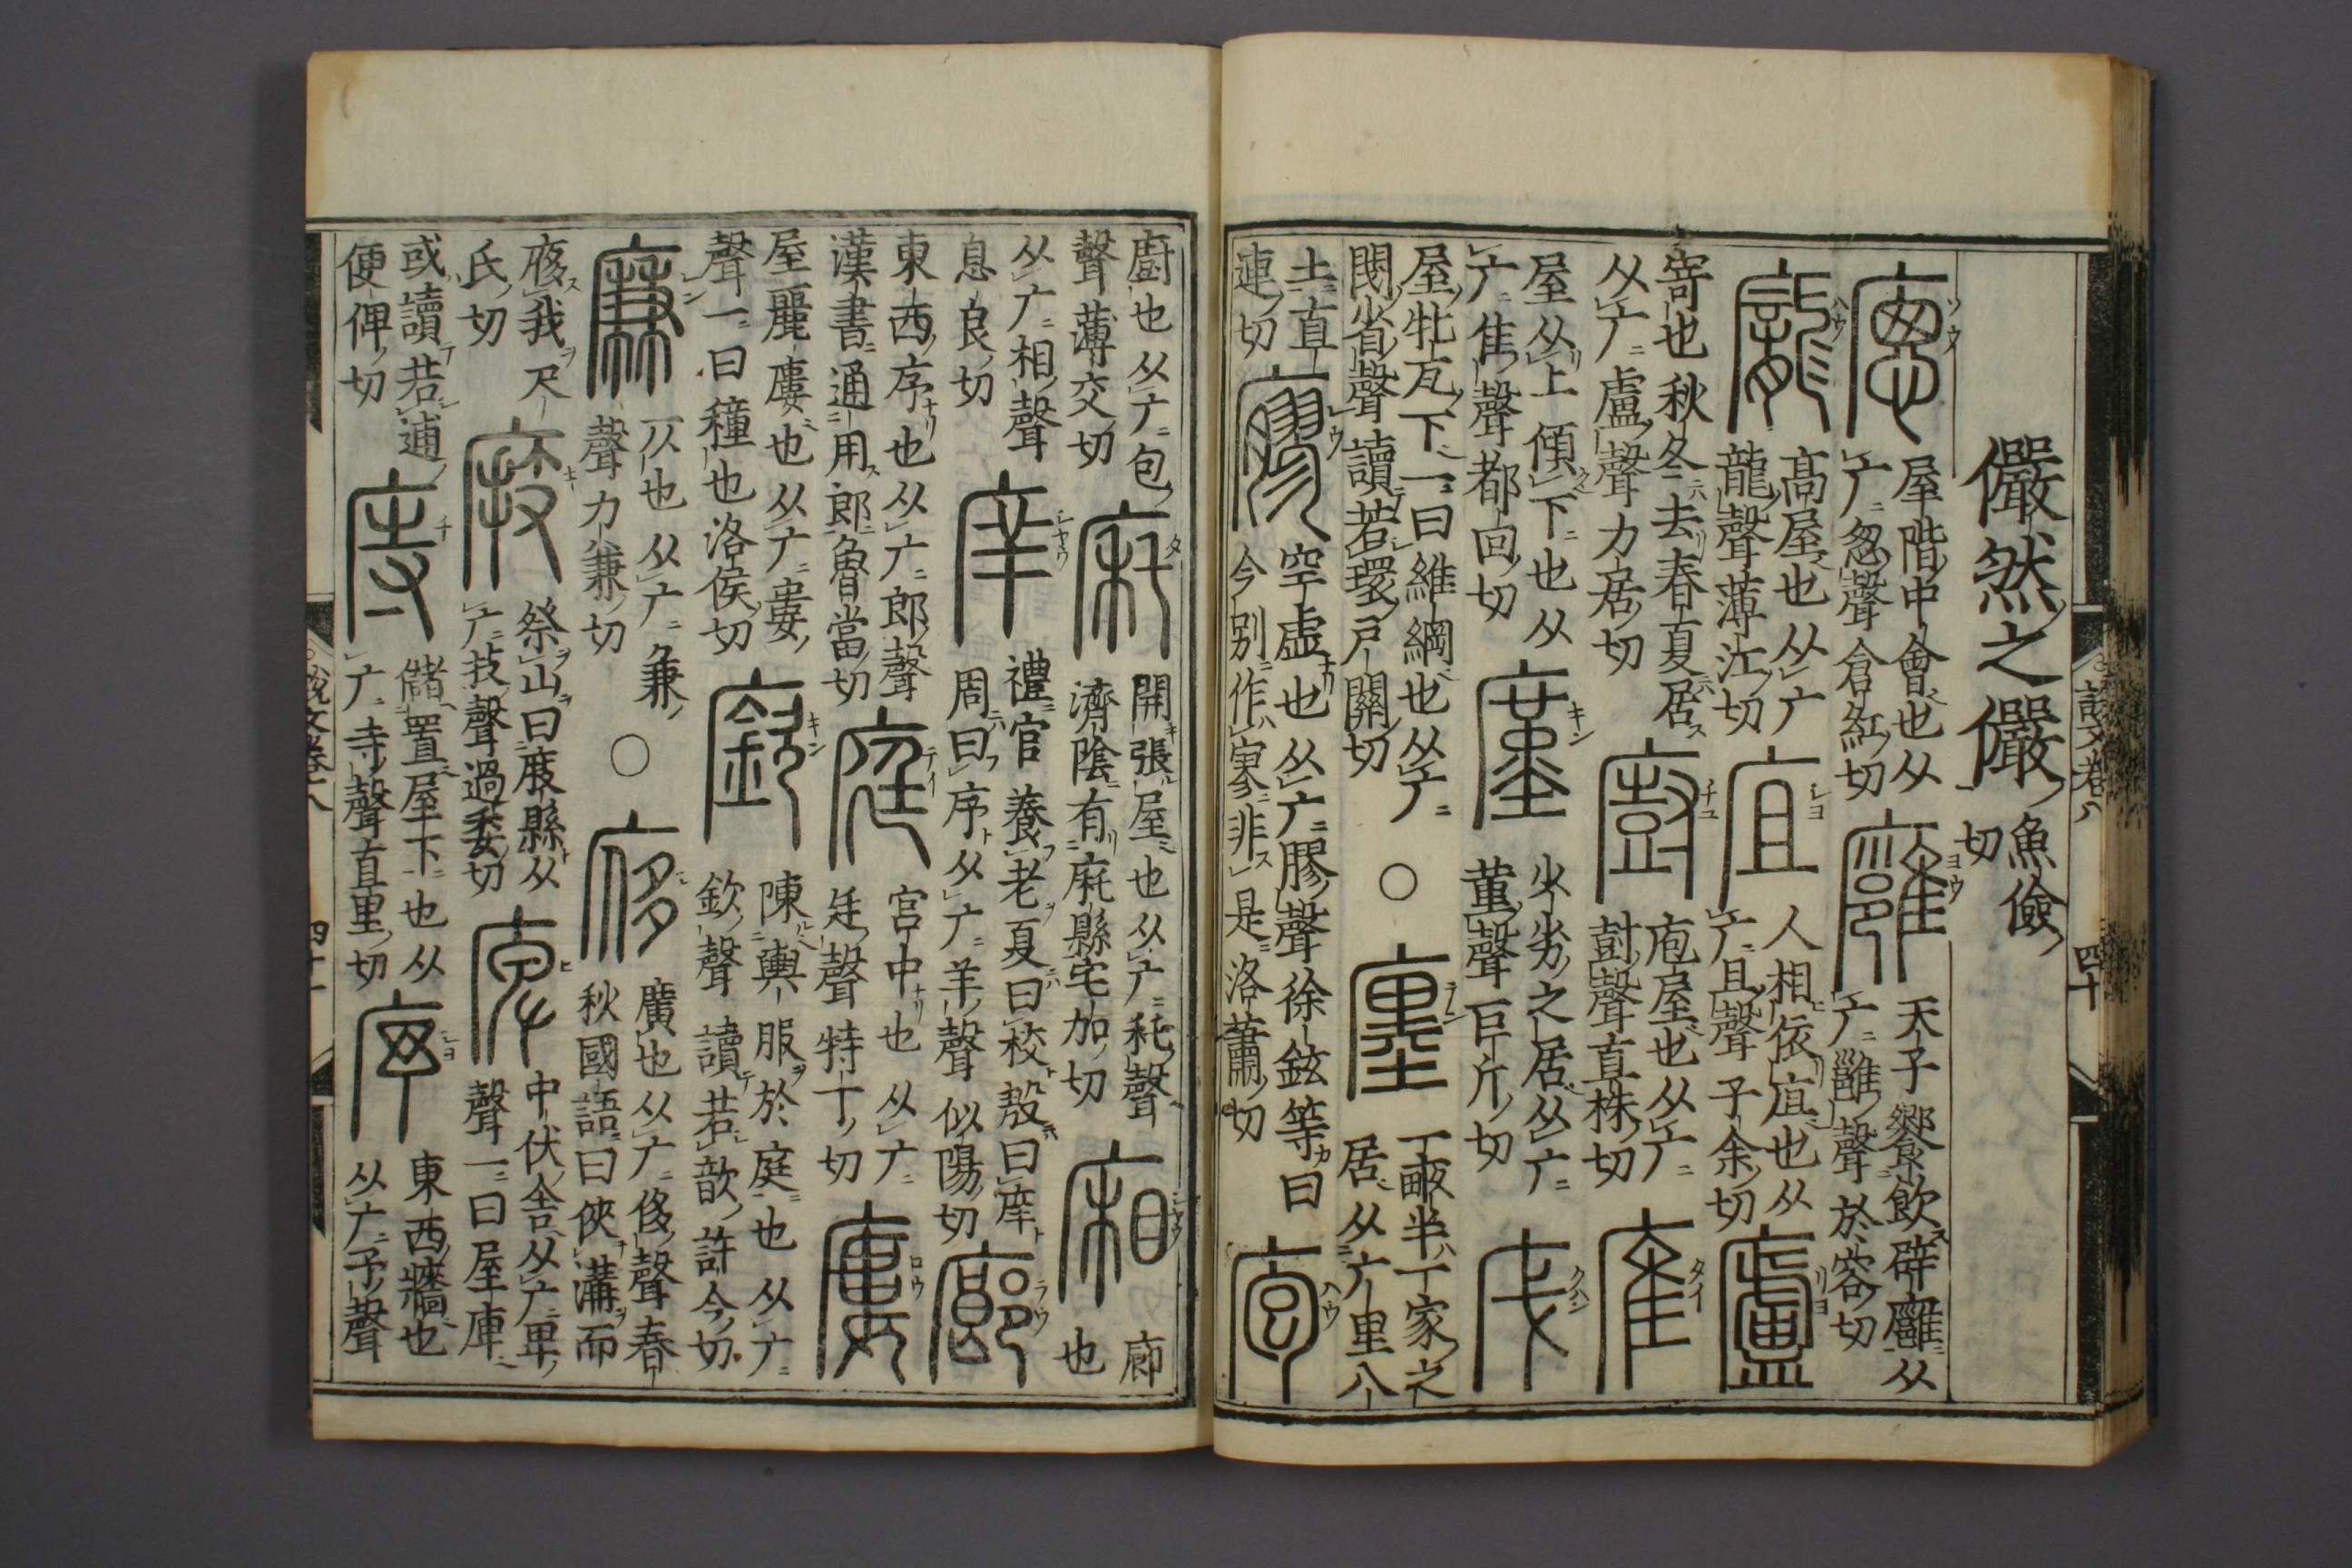 儼然之儼
魚儉
切
廖
屋階中會也从
广悤聲倉紅切
廱
天子饗飲辟廱从
广雝聲於容切
龐
高屋也从广
龍聲薄江切
人相依㡹也从
广且聲子余切
廬
寄也秋冬去春夏居
从广盧聲力居切
廚
庖屋也从广
尌聲直株切
屋从上傾下也从
广隹聲都回切
廑
少劣之居从广
堇聲巨斤切
屋牝瓦下一曰維綱也从广
閱省聲讀若環戶關切
○
廛
一畝半一家之
居从广里八
土直
連切
廫
空虛也从广膠聲徐鉉等曰
今別作寥非是洛蕭切
庖
說文卷八
四十
廚也从广包
聲薄交切
開張屋也从广秅聲
濟陰有庛縣宅加切
廂
廊
也
从广相聲
息良切
庠
禮官養老夏曰校殷曰庠
周曰序从广羊聲似陽切
廊
東西序也从广郎聲
漢書通用郎魯當切
庭
宮中也从广
廷聲特丁切
廔
屋麗廔也从广婁
聲一曰穜也洛侯切
廞
陳輿服於庭也从广
欽聲讀若歆許今切
廉
仄也从广兼
聲力兼切
○
㢋
廣也从广侈聲春
秋國語曰俠溝而
㢋我尺
氏切
庪
祭山曰庪縣从
广技聲過委切
庳
中伏舍从广卑
聲一曰屋庳
或讀若逋
便俾切
庤
儲置屋下也从
广寺聲直里切
序
東西牆也
从广予聲
說文卷八
四十一